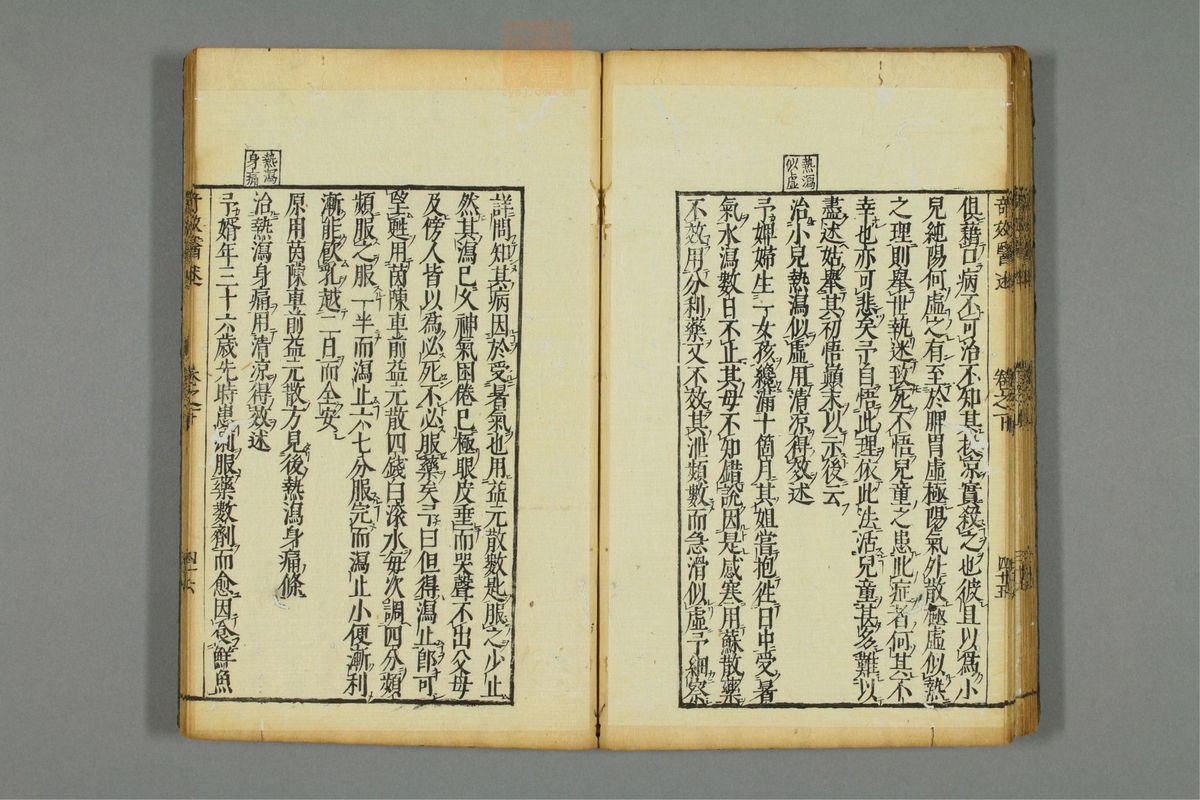 熱瀉
似虛
俱藉口病不可治不知其投凉實殺之也彼且以爲小
兒純陽何虛之有至於脾胃虛極陽氣外散極虛似熱
之理則舉世執迷致死不悟兒童之患此症者何其不
幸也亦可悲矣予自悟此理依此法活兒童甚多難以
盡述姑舉其初悟巔末以示後云
治小兒熱瀉似虛用清凉得效述
予婢婦生一女孩纔滿十箇月其姐當抱徃日中受暑
氣水瀉數日不止其母不知錯說因是感寒用蘇散藥
不效用分利藥又不效其泄頻數而急滑似虛予細察
奇效醫述
卷之下
四十五
詳問知其病因於受暑氣也用益元散數匙服之少止
然其瀉已久神氣困倦已極眼皮垂而哭聲不出父母
及傍人皆以爲必死不必服藥矣予曰但得瀉止卽可
望甦用茵陳車前益元散四錢白滚水每次調四分頻
頻服之服一半而瀉止六七分服完而瀉止小便漸利
漸能飮乳越二日而全安
原用茵陳車前益元散方見後熱瀉身痛條
熱瀉
身痛
治熱瀉身痛用清凉得效述
予婿年三十六歲先時患痢服藥數劑而愈因食鮮魚
奇效醫述
卷之下
四十六